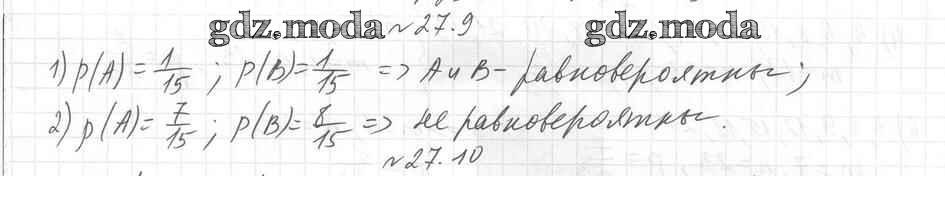 gdz.moda №27.9 gdz.moda
1) p(A) = 1/15 ; p(B) = 1/15 => A и B - равновероятны;
2) p(A) = 7/15 ; p(B) = 8/15 => не равновероятны.
№27.10